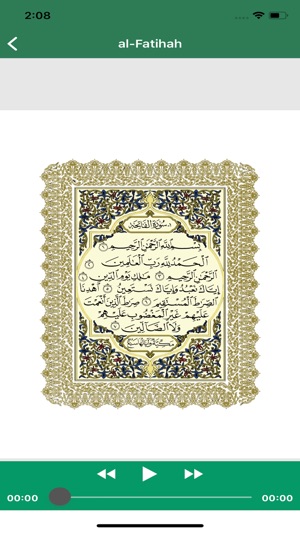 2:08
al-Fatihah
سورة الفاتحة
بسم الله الرحمن الرحيم ١
الحمد لله رب العلمين ٢
الرحمن الرحيم ٣ ملك يوم الدين ٤
إياك نعبد وإياك نستعين ٥ اهدنا
الصرط المستقيم ٦ صرط الذين أنعمت
عليهم غير المغضوب عليهم
ولا الضالين ٧
00:00
00:00